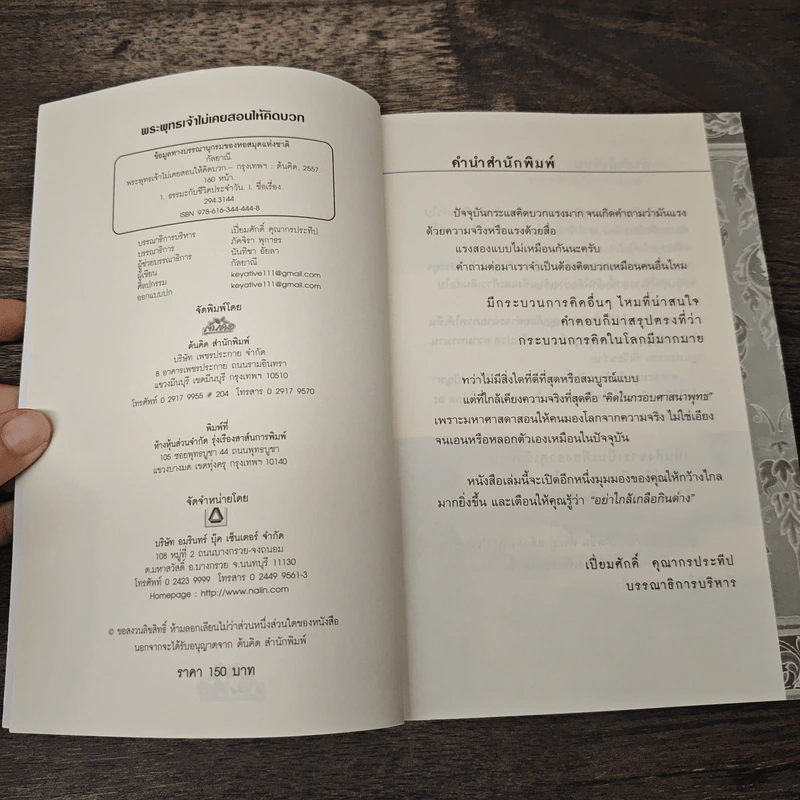 พระพุทธเจ้าไม่เคยสอนให้คิดบวก
ข้อมูลทางบรรณานุกรมของหอสมุดแห่งชาติ
กัลยาณี.
พระพุทธเจ้าไม่เคยสอนให้คิดบวก.-- กรุงเทพฯ : ต้นคิด, 2557
160 หน้า.
1. ธรรมะกับชีวิตประจำวัน. I. ชื่อเรื่อง.
294.3144
ISBN 978-616-344-444-8
บรรณาธิการบริหาร เปี่ยมศักดิ์ คุณากรประทีป
บรรณาธิการ ภัคจิรา พุกาธร
ผู้ช่วยบรรณาธิการ นันทิชา อัยลา
ผู้เขียน กัลยาณี
ศิลปกรรม keyative111@gmail.com
ออกแบบปก keyative111@gmail.com
จัดพิมพ์โดย
ต้นคิด
ต้นคิด สำนักพิมพ์
บริษัท เพชรประกาย จำกัด
8 อาคารเพชรประกาย ถนนรามอินทรา
แขวงมีนบุรี เขตมีนบุรี กรุงเทพฯ 10510
โทรศัพท์ 0 2917 9955 # 204 โทรสาร 0 2917 9570
พิมพ์ที่
ห้างหุ้นส่วนจำกัด รุ่งเรืองสาส์นการพิมพ์
105 ซอยพุทธบูชา 44 ถนนพุทธบูชา
แขวงบางมด เขตทุ่งครุ กรุงเทพฯ 10140
จัดจำหน่ายโดย
บริษัท อมรินทร์ บุ๊ค เซ็นเตอร์ จำกัด
108 หมู่ที่ 2 ถนนบางกรวย-จงถนอม
ต.มหาสวัสดิ์ อ.บางกรวย จ.นนทบุรี 11130
โทรศัพท์ 0 2423 9999 โทรสาร 0 2449 9561-3
Homepage : http://www.naiin.com
© ขอสงวนลิขสิทธิ์ ห้ามลอกเลียนไม่ว่าส่วนหนึ่งส่วนใดของหนังสือ
นอกจากจะได้รับอนุญาตจาก ต้นคิด สำนักพิมพ์
ราคา 150 บาท
คำนำสำนักพิมพ์
ปัจจุบันกระแสคิดบวกแรงมาก จนเกิดคำถามว่ามันแรง
ด้วยความจริงหรือแรงด้วยสื่อ
แรงสองแบบไม่เหมือนกันนะครับ
คำถามต่อมาเราจำเป็นต้องคิดบวกเหมือนคนอื่นไหม
มีกระบวนการคิดอื่นๆ ไหมที่น่าสนใจ
คำตอบก็มาสรุปตรงที่ว่า
กระบวนการคิดในโลกมีมากมาย
ทว่าไม่มีสิ่งใดที่ดีที่สุดหรือสมบูรณ์แบบ
แต่ที่ใกล้เคียงความจริงที่สุดคือ “คิดในกรอบศาสนาพุทธ”
เพราะมหาศาสดาสอนให้คนมองโลกจากความจริง ไม่ใช่เอียง
จนเอนหรือหลอกตัวเองเหมือนในปัจจุบัน
หนังสือเล่มนี้จะเปิดอีกหนึ่งมุมมองของคุณให้กว้างไกล
มากยิ่งขึ้น และเตือนให้คุณรู้ว่า “อย่าใกล้เกลือกินด่าง”
เปี่ยมศักดิ์ คุณากรประทีป
บรรณาธิการบริหาร